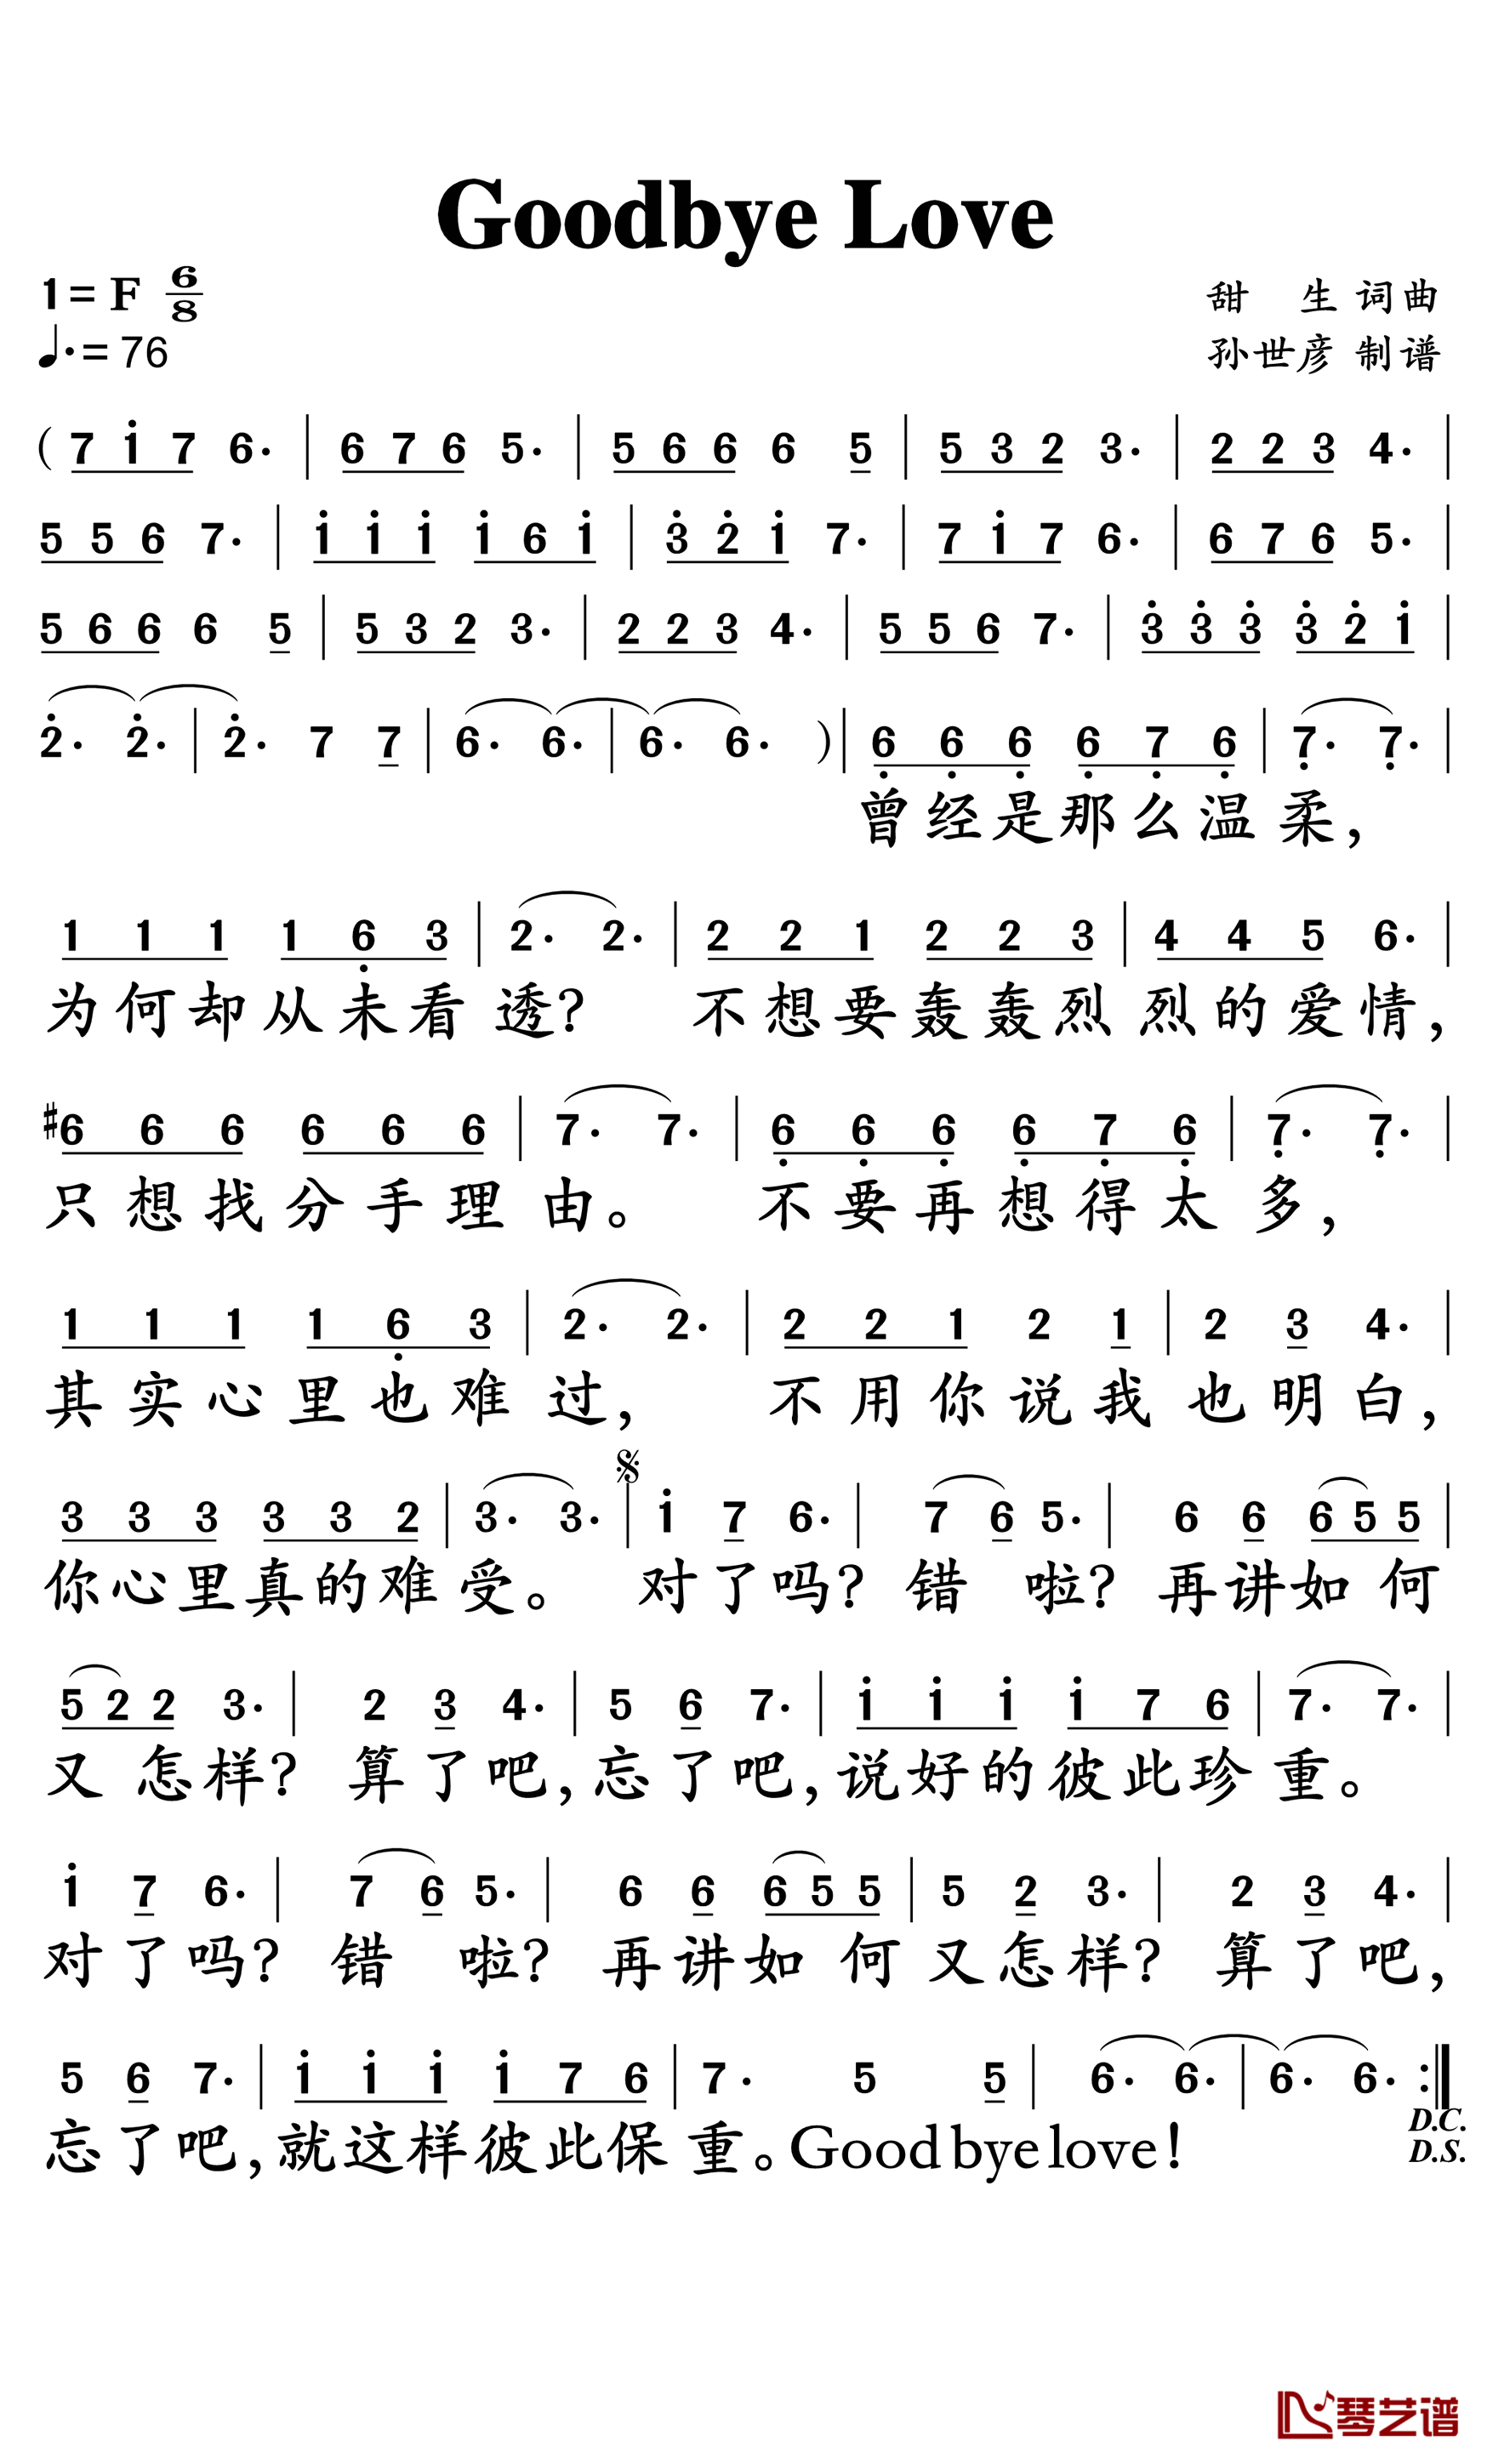 Goodbye Love
1=F 6/8
甜 生 词曲
♩.=76
孙世彦 制谱
(7 i 7 6· | 6 7 6 5· | 5 6 6 6 5 | 5 3 2 3· | 2 2 3 4· |
5 5 6 7· | i i i i 6 i | 3̇ 2̇ i 7· | 7 i 7 6· | 6 7 6 5· |
5 6 6 6 5 | 5 3 2 3· | 2 2 3 4· | 5 5 6 7· | 3̇ 3̇ 3̇ 3̇ 2̇ i |
2̇· 2̇· | 2̇· 7 7 | 6· 6· | 6· 6· )| 6̣ 6̣ 6̣ 6̣ 7̣ 6̣ | 7̣· 7̣· |
曾经是那么温柔,
1 1 1 1 6̣ 3 | 2· 2· | 2 2 1 2 2 3 | 4 4 5 6· |
为何却从未看透? 不想要轰轰烈烈的爱情,
#6 6 6 6 6 6 | 7· 7· | 6̣ 6̣ 6̣ 6̣ 7̣ 6̣ | 7̣· 7̣· |
只想找分手理由。 不要再想得太多,
1 1 1 1 6̣ 3 | 2· 2· | 2 2 1 2 1 | 2 3 4· |
其实心里也难过, 不用你说我也明白,
3 3 3 3 3 2 | 3· 3· | i 7 6· | 7 6 5· | 6 6 6 5 5 |
你心里真的难受。 对了吗? 错 啦? 再讲如何
5 2 2 3· | 2 3 4· | 5 6 7· | i i i i 7 6 | 7· 7· |
又怎样? 算了吧,忘了吧,说好的彼此珍重。
i 7 6· | 7 6 5· | 6 6 6 5 5 | 5 2 3· | 2 3 4· |
对了吗? 错 啦? 再讲如何又怎样? 算了吧,
5 6 7· | i i i i 7 6 | 7· 5 5 | 6· 6· | 6· 6· :|
忘了吧,就这样彼此保重。Goodbyelove!
D.C.
D.S.
琴艺谱